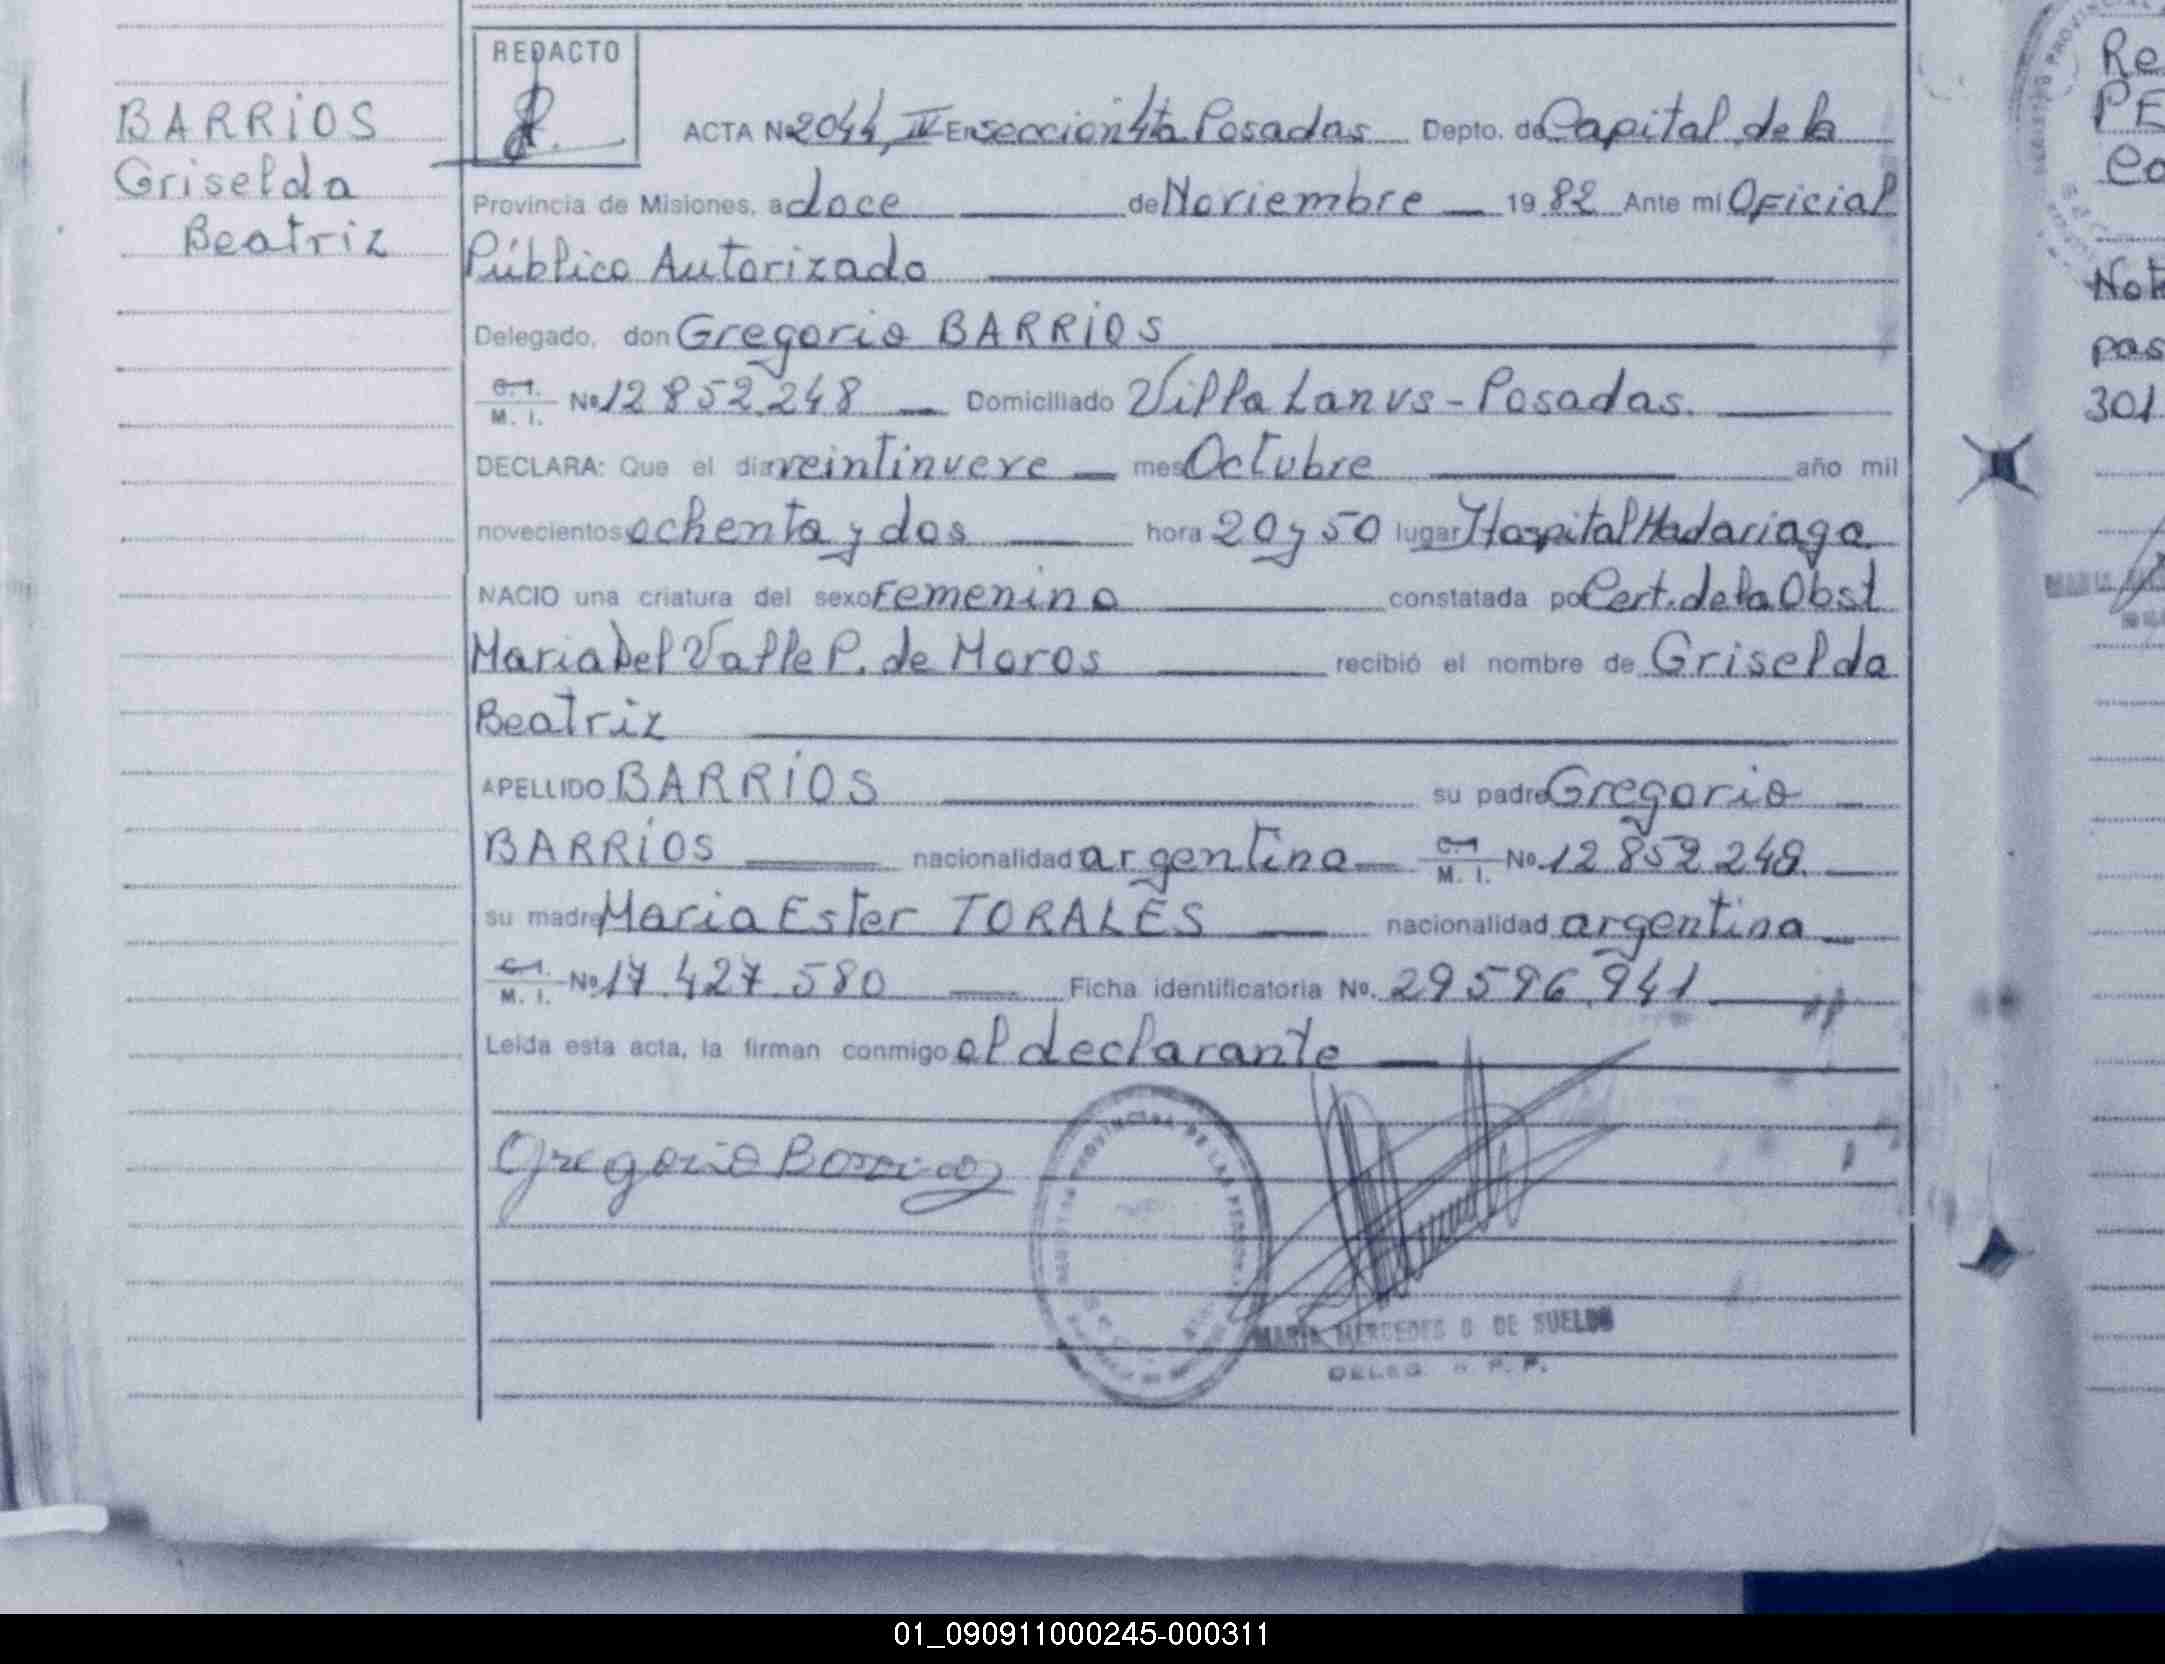 BARRIOS
Griselda
Beatriz
REDACTO
ACTA Nº 2044, IV En seccion 4ta Posadas Depto. de Capital de la
Provincia de Misiones, a doce de Noviembre 1982 Ante mi Oficial
Público Autorizado
Delegado, don Gregorio BARRIOS
C. I.
M. I. Nº 12 852 248 Domiciliado Villa Lanus - Posadas.
DECLARA: Que el día veintinueve mes Octubre año mil
novecientos ochenta y dos hora 20 y 50 lugar Hospital Madariaga
NACIO una criatura del sexo Femenino constatada por Cert. de la Obst
Maria Del Valle P. de Moros recibió el nombre de Griselda
Beatriz
APELLIDO BARRIOS su padre Gregorio
BARRIOS nacionalidad argentina C. I. M. I. No. 12 852 248
su madre Maria Ester TORALES nacionalidad argentina
C. I.
M. I. Nº 17.427.580 Ficha identificatoria No. 29 596.941
Leída esta acta, la firman conmigo el declarante
Gregorio Barrios
MARIA MERCEDES G DE SUELDO
DELEG. R. P. P.
Re
PE
Not
pas
301
01_090911000245-000311